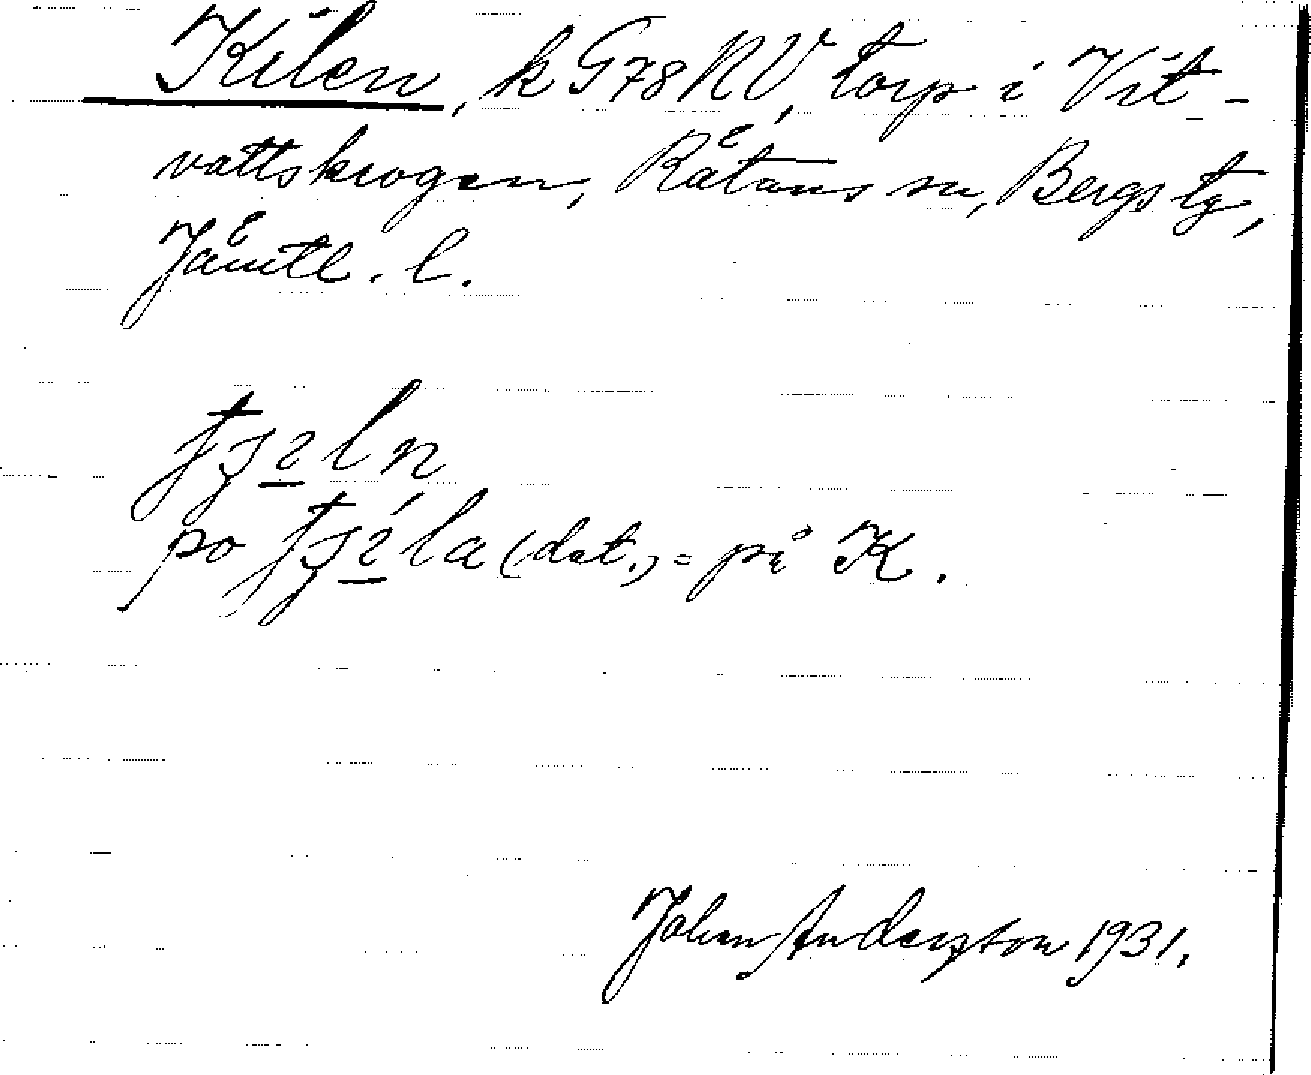 Kilen, k G78NV, torp i Vit-
vattskrogen, Rätans sn, Bergs tg,
Jämtl. l.
po (dat.) = på K.
Johan Anderston 1931.